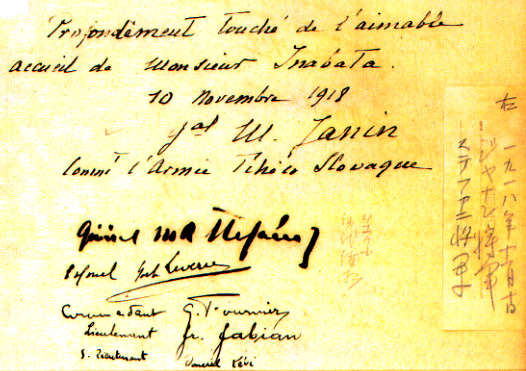 Profondément touché de l'aimable
accueil de Monsieur Inabata.
10 Novembre 1918
Gal M. Janin
Commt l'Armée Tchéco Slovaque
Général
Colonel
Commandant G. Fournier
Lieutenant Fr. Fabian
S. Lieutenant Daniel Lévi
右
一九一八年十一月十日
ジャナン将軍
ステファニ将軍